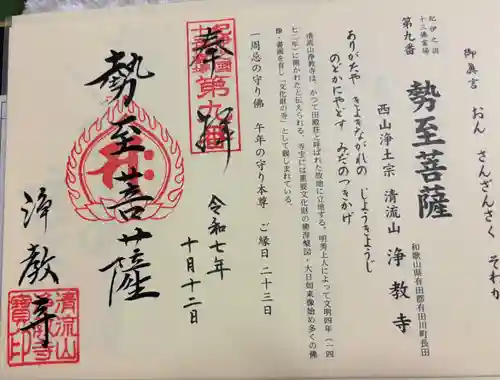 御真言　おん　さんざんざく　そわか
紀伊之国
十三佛霊場
第九番
勢至菩薩
和歌山県有田郡有田川町長田
西山浄土宗　清流山　浄教寺
ありがたや　きよきながれの　じょうきょうじ
のどかにやどす　みだのつきかげ
清流山浄教寺は、かつて田殿荘と呼ばれた故地に立地する。明秀上人によって文明四年（一四
七二年）に開かれたと伝えられる。寺宝には重要文化財の佛涅槃図・大日如来像始め多くの佛
像・書画を有し「文化財の寺」として親しまれている。
一周忌の守り佛　午年の守り本尊　ご縁日二十三日
紀伊之國
十三佛霊場
第九番
奉拝
令和七年
十月十二日
勢至菩薩
浄教寺
清流山
浄教寺
寶印